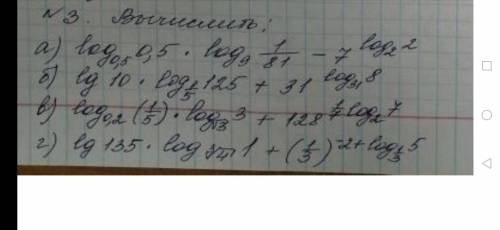 №3. Вычислить:
а) log₀,₅ 0,5 · log₉ 1/81 − 7^(log₂ 2)
б) lg 10 · log_(1/5) 125 + 31^(log₃₁ 8)
в) log₀,₂ (1/5) · log_(√3) 3 + 128^(1/7 log₂ 7)
г) lg 135 · log_(√π) 1 + (1/3)^(-2+log_(1/3) 5)